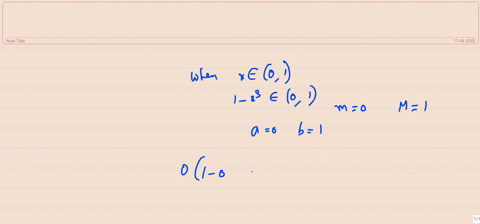 Note Title
17-08-2022
when x ∈ (0, 1)
1-x³ ∈ (0, 1) m=0 M=1
a=0 b=1
0 (1-0